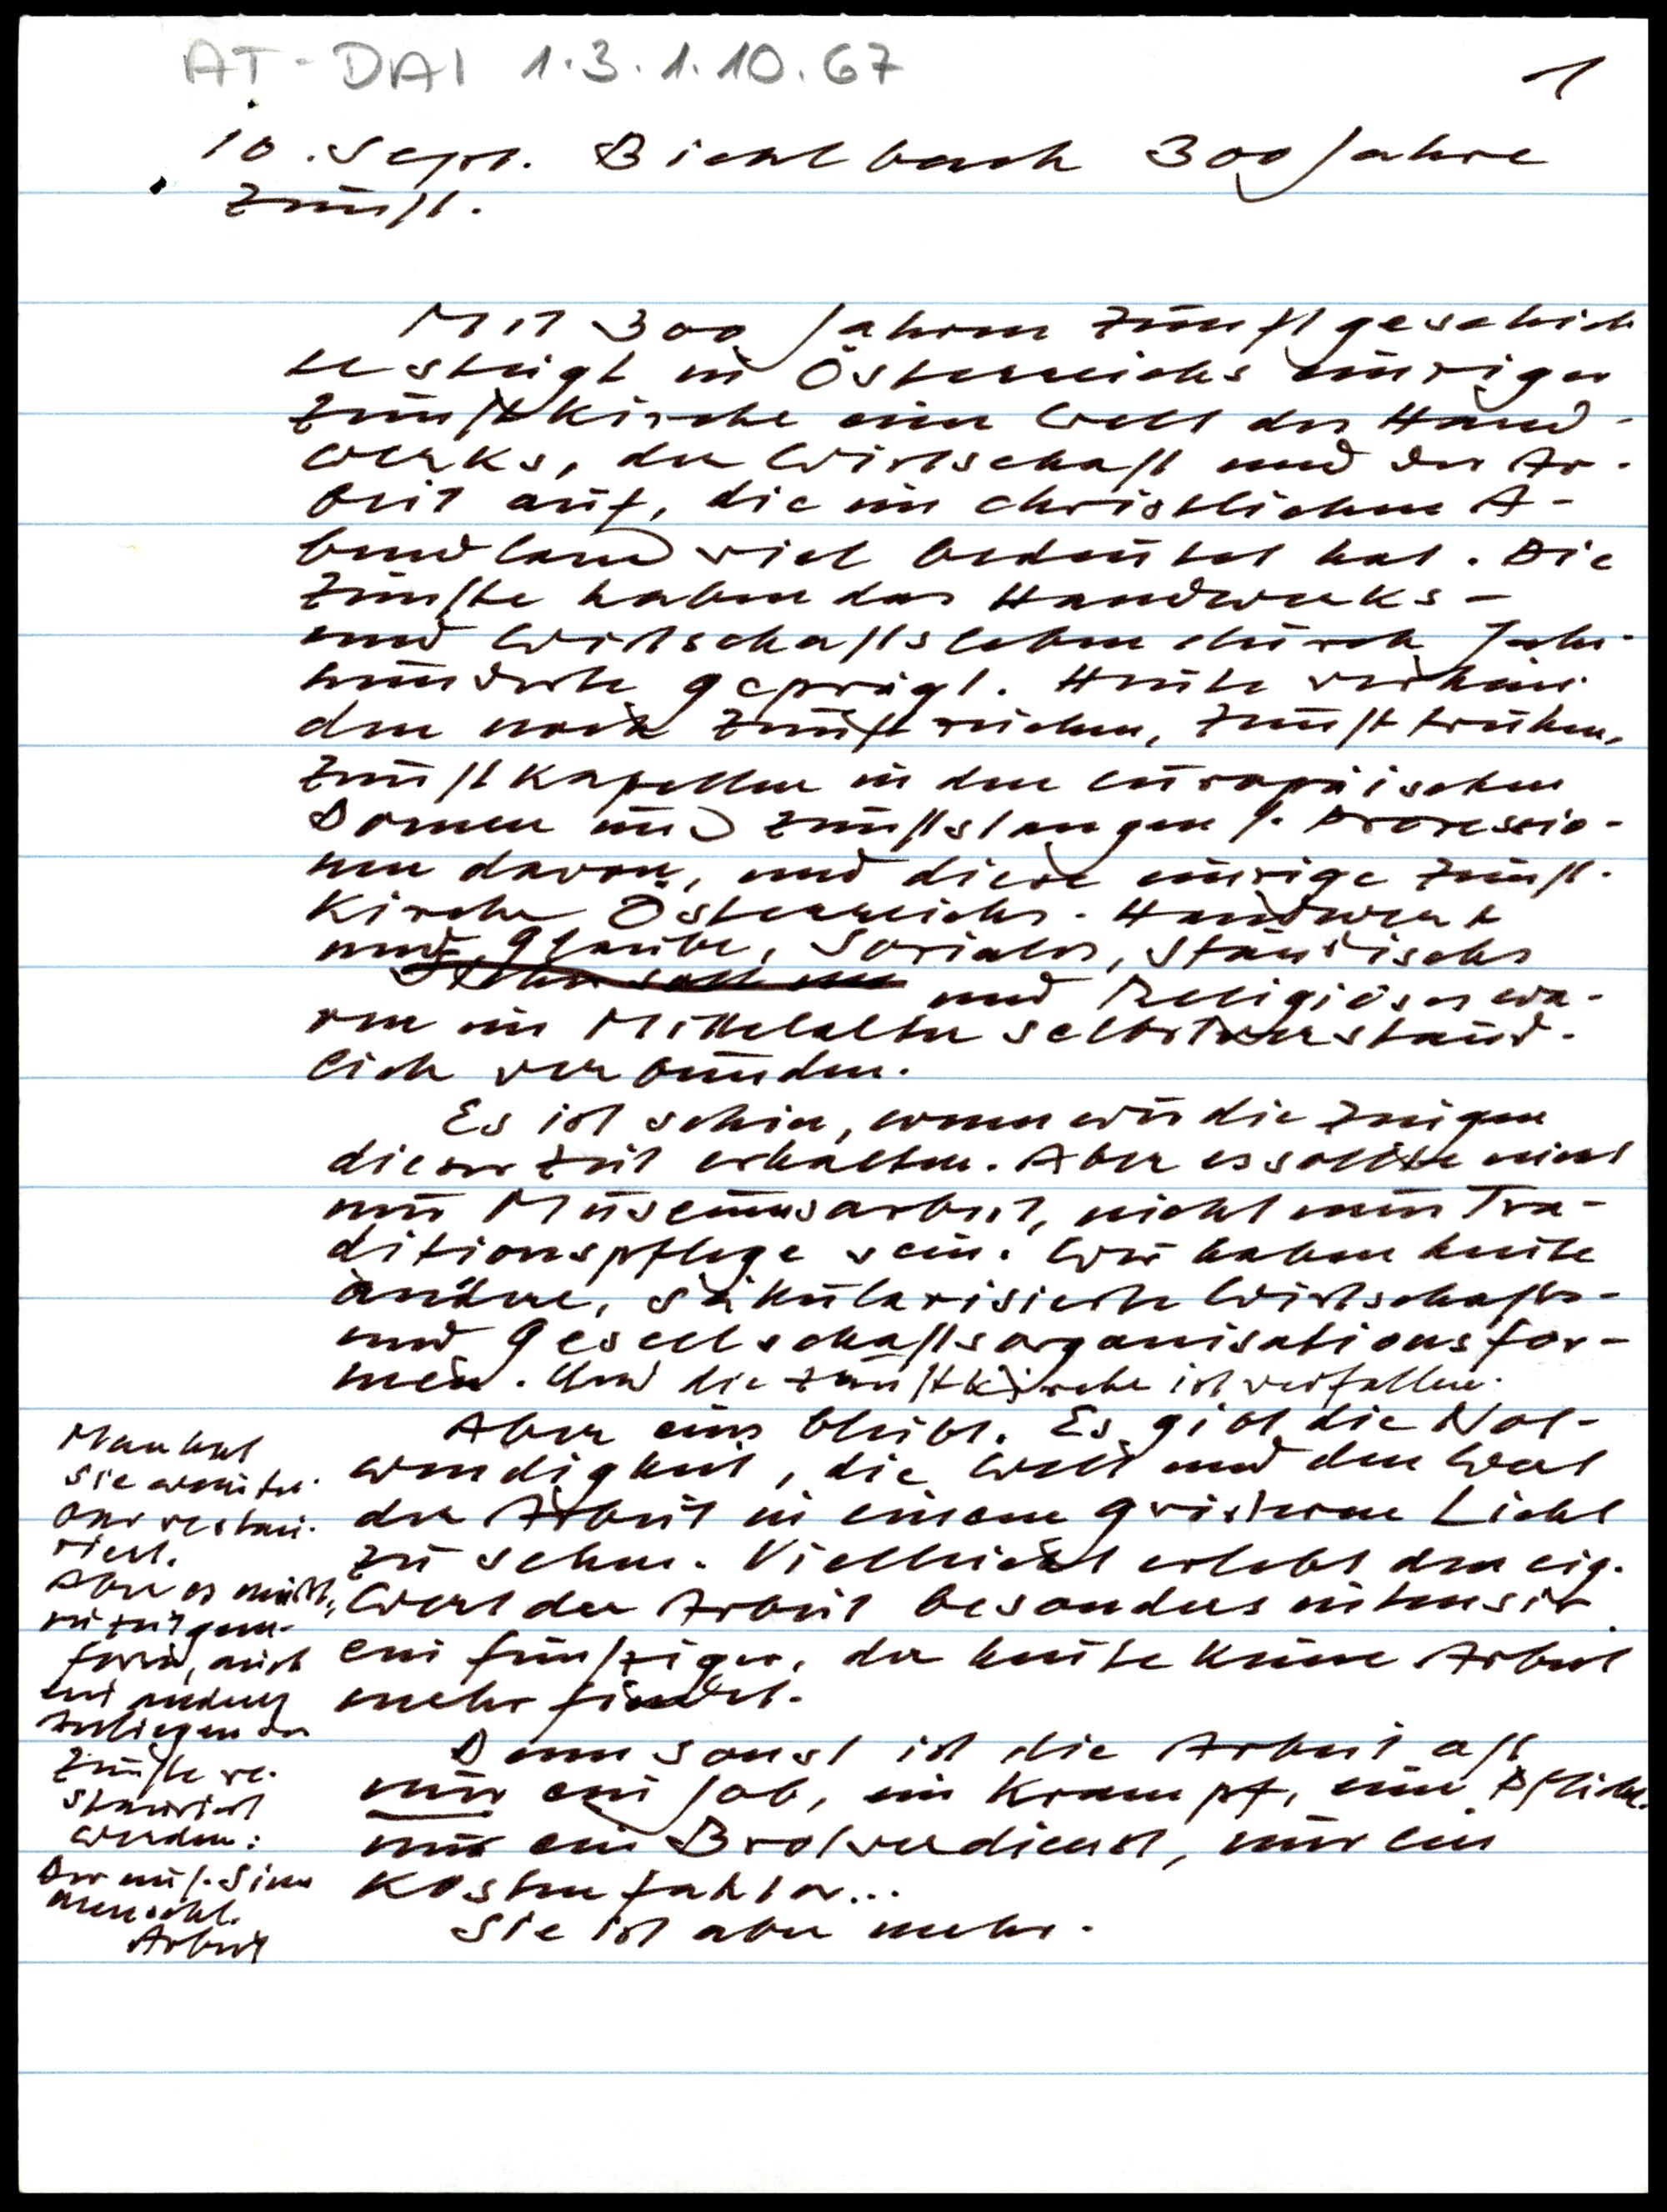 AT-DAI 1.3.1.10.67
1
10. Sept. Bichlbach 300 Jahre
Zunft.
Mit 300 Jahren Zunftgeschich
te steigt in Österreichs einziger
Zunftkirche eine Welt des Hand-
werks, der Wirtschaft und der Ar-
beit auf, die im christlichen A-
bendland viel bedeutet hat. Die
Zünfte haben das Handwerks-
und Wirtschaftsleben durch Jahr-
hunderte geprägt. Heute verkün-
den noch Zunftzeichen, Zunfttruhen,
Zunftkapellen in den europäischen
Domen und Zunftstangen f. Prozessio-
nen davon, und diese einzige Zunft-
kirche Österreichs. Handwerk
und Glaube, Soziales, Ständisches
und Religiöses wa-
ren im Mittelalter selbstverständ-
lich verbunden.
Es ist schön, wenn wir die Zeugen
dieser Zeit erhalten. Aber es sollte nicht
nur Museumsarbeit, nicht nur Tra-
ditionspflege sein. Wir haben heute
andere, säkularisierte Wirtschafts-
und Gesellschaftsorganisationsfor-
men. Und die Zunftkirche ist verfallen.
Aber eins bleibt. Es gibt die Not-
wendigkeit, die Welt und den Wert
der Arbeit in einem grösseren Licht
zu sehen. Vielleicht erlebt den eig.
Wert der Arbeit besonders intensiv
ein Fünfziger, der heute keine Arbeit
mehr findet.
Denn sonst ist die Arbeit oft
nur ein Job, ein Krampf, eine Pflicht,
nur ein Brotverdienst, nur ein
Kostenfaktor...
Sie ist aber mehr.
Man hat
sie wunder-
bar restau-
riert.
Aber es müßte,
in zeitgem.
Form, auch
ein anderes
Anliegen der
Zünfte re-
stauriert
werden:
Der
Sinn
menschl.
Arbeit